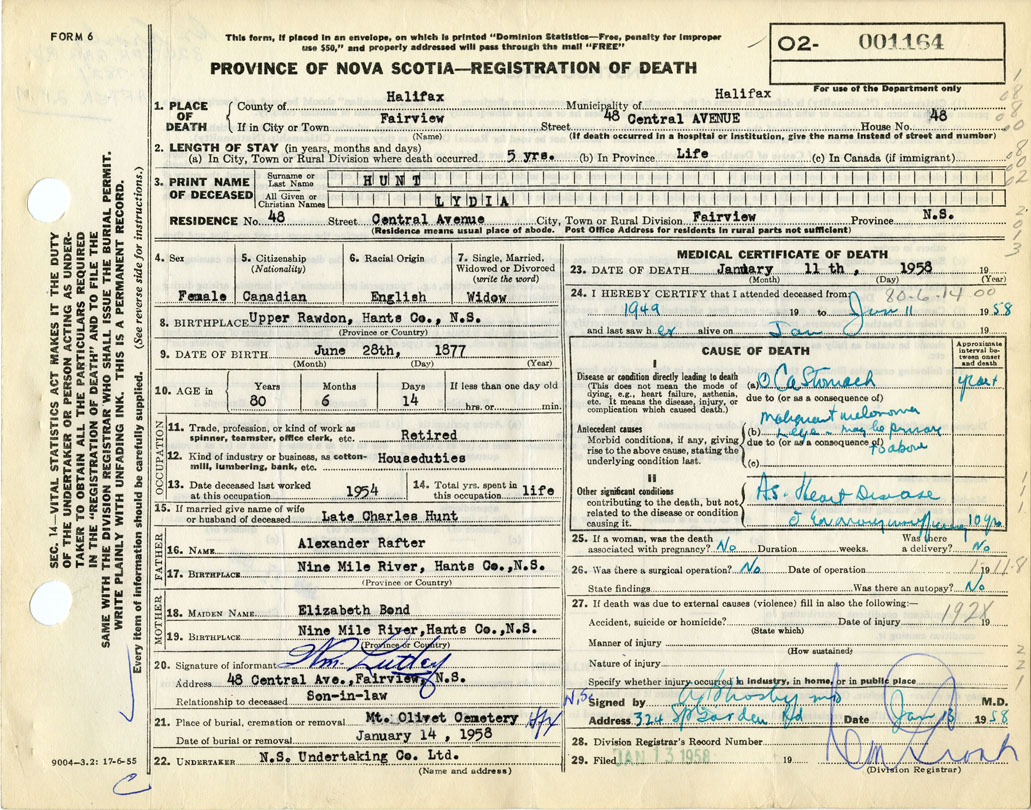 FORM 6
This form, if placed in an envelope, on which is printed "Dominion Statistics—Free, penalty for improper
use $50," and properly addressed will pass through the mail "FREE"
PROVINCE OF NOVA SCOTIA—REGISTRATION OF DEATH
O2- 001164
For use of the Department only
1. PLACE OF DEATH
County of Halifax Municipality of Halifax
If in City or Town Fairview Street 48 Central AVENUE House No. 48
(Name) (If death occurred in a hospital or institution, give the name instead of street and number)
2. LENGTH OF STAY (in years, months and days)
(a) In City, Town or Rural Division where death occurred 5 yrs. (b) In Province Life (c) In Canada (if immigrant)
3. PRINT NAME OF DECEASED
Surname or Last Name HUNT
All Given or Christian Names LYDIA
RESIDENCE No. 48 Street Central Avenue City, Town or Rural Division Fairview Province N.S.
(Residence means usual place of abode. Post Office Address for residents in rural parts not sufficient)
4. Sex
Female
5. Citizenship
(Nationality)
Canadian
6. Racial Origin
English
7. Single, Married,
Widowed or Divorced
(write the word)
Widow
8. BIRTHPLACE Upper Rawdon, Hants Co., N.S.
(Province or Country)
9. DATE OF BIRTH June 28th, 1877
(Month) (Day) (Year)
10. AGE in
Years Months Days If less than one day old
80 6 14 hrs. or min.
OCCUPATION
11. Trade, profession, or kind of work as
spinner, teamster, office clerk, etc. Retired
12. Kind of industry or business, as cotton-
mill, lumbering, bank, etc. Houseduties
13. Date deceased last worked
at this occupation 1954
14. Total yrs. spent in
this occupation life
15. If married give name of wife
or husband of deceased Late Charles Hunt
FATHER
16. NAME Alexander Rafter
17. BIRTHPLACE Nine Mile River, Hants Co.,N.S.
(Province or Country)
MOTHER
18. MAIDEN NAME Elizabeth Bond
19. BIRTHPLACE Nine Mile River,Hants Co.,N.S.
(Province or Country)
20. Signature of informant Wm. Lutley
Address 48 Central Ave.,Fairview, N.S.
Relationship to deceased Son-in-law
21. Place of burial, cremation or removal Mt. Olivet Cemetery Hfx N.S.
Date of burial or removal January 14, 1958
22. UNDERTAKER N.S. Undertaking Co. Ltd.
(Name and address)
MEDICAL CERTIFICATE OF DEATH
23. DATE OF DEATH January 11th, 1958 19
(Month) (Day) (Year)
24. I HEREBY CERTIFY that I attended deceased from 80-6-14 00
1949 19 to Jan 11 1958
and last saw her alive on Jan 19
CAUSE OF DEATH
Approximate interval between onset and death
I
Disease or condition directly leading to death
(This does not mean the mode of
dying, e.g., heart failure, asthenia,
etc. It means the disease, injury, or
complication which caused death.)
(a) Ca Stomach year +
due to (or as a consequence of)
Malignant melonoma
Antecedent causes
Morbid conditions, if any, giving
rise to the above cause, stating the
underlying condition last.
(b) may be primary
due to (or as a consequence of) to above
(c)
II
Other significant conditions
contributing to the death, but not
related to the disease or condition
causing it.
As. Heart Disease
10 yrs.
25. If a woman, was the death
associated with pregnancy? No Duration weeks. Was there
a delivery? No
26. Was there a surgical operation? No Date of operation 19
State findings Was there an autopsy? No
27. If death was due to external causes (violence) fill in also the following:—
Accident, suicide or homicide? Date of injury 19
192X
(State which)
Manner of injury
(How sustained)
Nature of injury
Specify whether injury occurred in industry, in home, or in public place
Signed by M.D.
Address 324 Sp Garden Rd Date Jan 13 1958
28. Division Registrar's Record Number
29. Filed JAN 13 1958 19
(Division Registrar)
SEC. 14—VITAL STATISTICS ACT MAKES IT THE DUTY
OF THE UNDERTAKER OR PERSON ACTING AS UNDER-
TAKER TO OBTAIN ALL THE PARTICULARS REQUIRED
IN THE "REGISTRATION OF DEATH" AND TO FILE THE
SAME WITH THE DIVISION REGISTRAR WHO SHALL ISSUE THE BURIAL PERMIT.
WRITE PLAINLY WITH UNFADING INK. THIS IS A PERMANENT RECORD.
Every item of information should be carefully supplied. (See reverse side for instructions.)
9004—3.2: 17-6-55